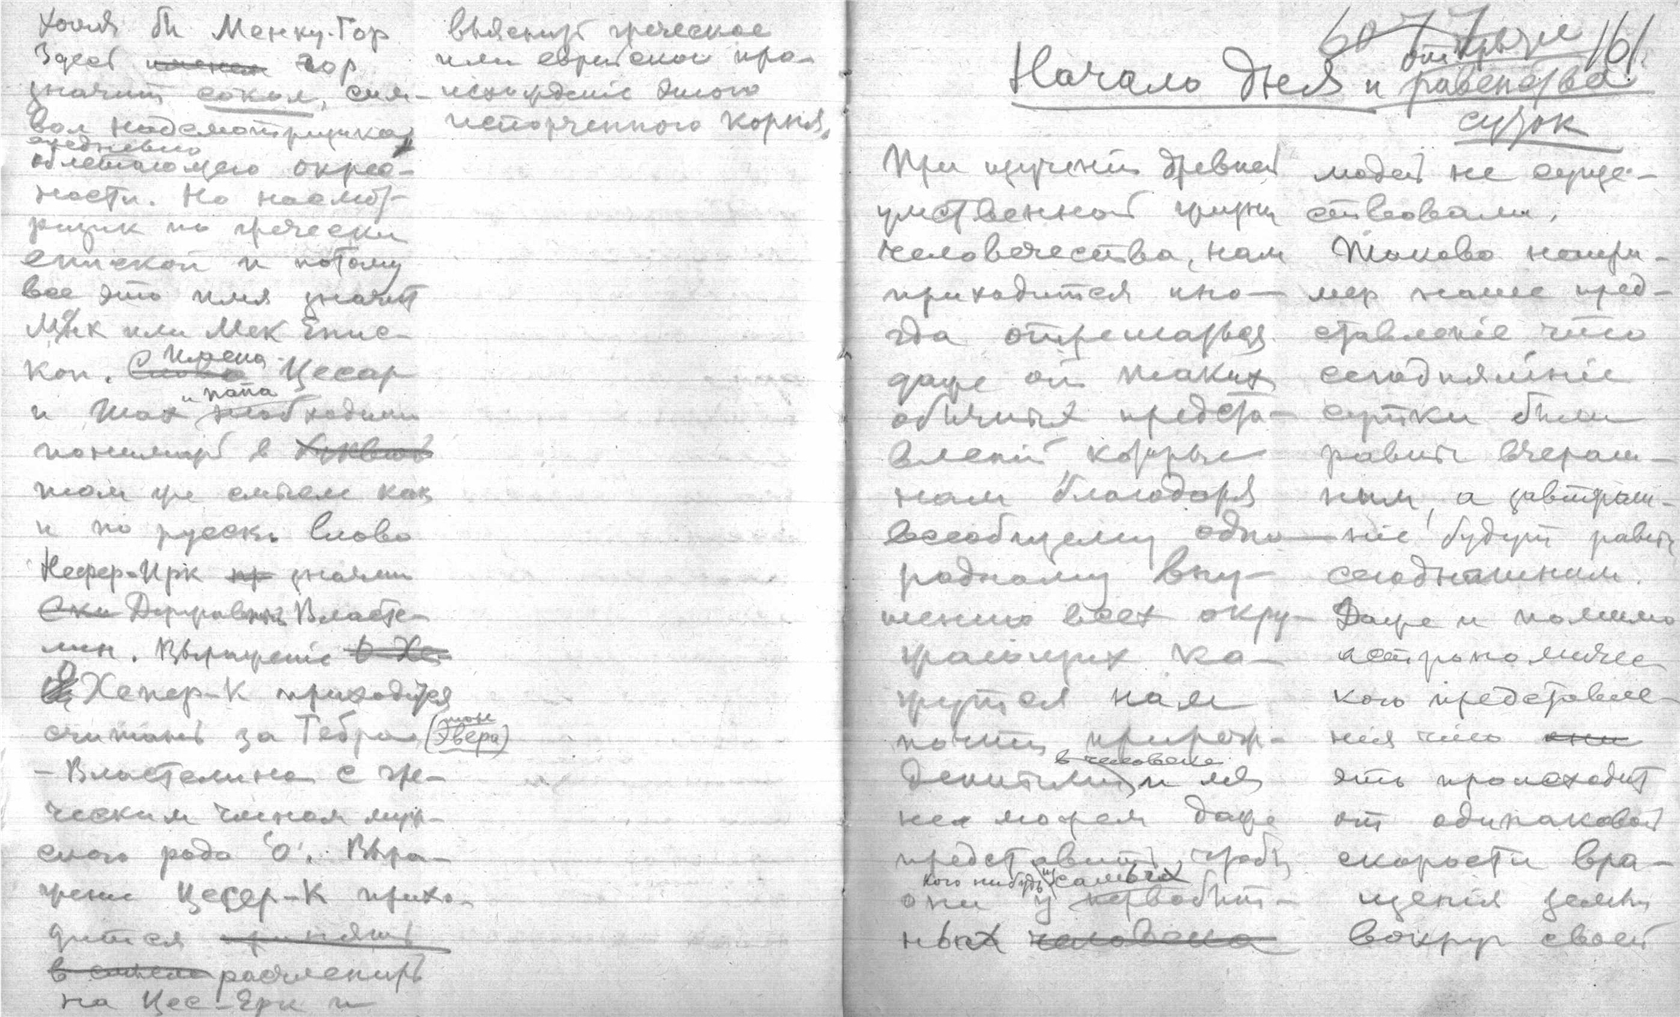 хотя бы Менку-Гор
Здесь гор
значит сокол, сим-
вол надсмотрщика,
ежедневно
облетающего окрес-
ности. Но насмот-
рщик по гречески
епископ и потому
все это имя значит
Мнк или Мек Епис-
коп. Имена Цесар
и Шах и папа необходимо
понимать в
том же смысле как
и по русски. Слово
Нефер-Ирк значит
Державный Власте-
лин. Выражение
О Хепер-К приходится
считать за Тебра (тож Эвера)
- Властелина с гре-
ческим членом муж-
ского рода 'О'. Выра-
жение Цесер-К прихо-
дится принять
в смысле расчленить
на Цес-Ерк и
выяснить греческое
или еврейское про-
исхождение этого
испорченного корня.
161.
Начало дня и открытие равенства
суток
При изучении древней
умственной жизни
человечества, нам
приходится ино-
гда отрешаться
даже от таких
обычных предста-
влений которые
нам благодаря
всеобщему одно-
родному вну-
шению всех окру-
жающих ка-
жутся нам
почти прирож-
в человеке
денными и мы
не можем даже
представить, чтобы
кого нибудь из самых
они у первобыт-
ных человека
людей не суще-
ствовали.
Таково напри-
мер наше пред-
ставленiе что
сегодняшнiе
сутки были
равны вчераш-
ним, а завтраш-
нiе будут равны
сегодняшним.
Даже и помимо
астрономичес
кого представле-
ния что они
это происходит
от одинаковой
скорости вра-
щенiя земли
вокруг своей